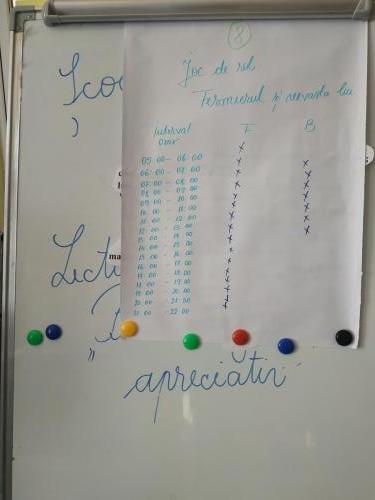 8
Joc de rol
Fermierul și nevasta lui
Interval orar F B
05:00 - 06:00 x
06:00 - 07:00 x x
07:00 - 08:00 x x
08:00 - 09:00 x x
09:00 - 10:00 x x
10:00 - 11:00 x x
11:00 - 12:00 x x
12:00 - 13:00 x x
13:00 - 14:00 x
14:00 - 15:00 x
15:00 - 16:00 x
16:00 - 17:00 x
17:00 - 18:00 x
18:00 - 19:00 x
19:00 - 20:00 x
20:00 - 21:00 x
21:00 - 22:00 x
apreciativ